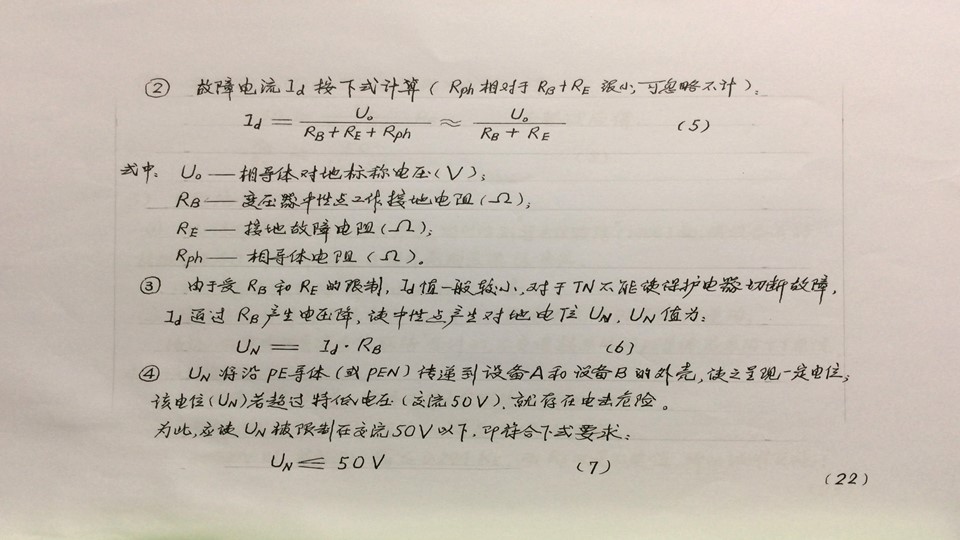 ② 故障电流 Id 按下式计算（Rph 相对于 RB+RE 很小,可忽略不计）:
Id = U₀ / (RB + RE + Rph) ≈ U₀ / (RB + RE) (5)
式中: U₀ — 相导体对地标称电压(V);
RB — 变压器中性点工作接地电阻(Ω);
RE — 接地故障电阻(Ω);
Rph — 相导体电阻(Ω)。
③ 由于受 RB 和 RE 的限制, Id值一般较小,对于TN不能使保护电器切断故障,
Id 通过 RB 产生电压降,使中性点产生对地电位 UN, UN 值为:
UN = Id · RB (6)
④ UN 将沿PE导体(或PEN)传递到设备A和设备B的外壳,使之呈现一定电位;
该电位(UN)若超过特低电压(交流50V),就存在电击危险。
为此,应使 UN 被限制在交流50V以下,即符合下式要求:
UN ≤ 50V (7)
(22)